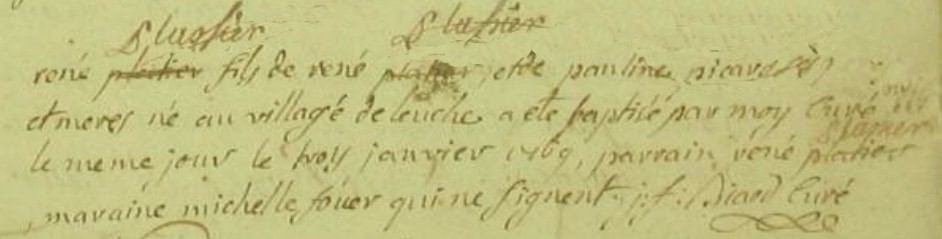 Plussier Plussier
rené platier fils de rené platier et de pauline picard pères
et meres né au village de leuche a été baptisé par moy curé
Plussier
le meme jour le trois janvier 1769, parrain rené platier
maraine michelle fouer qui ne signent. j: f: Picard Curé